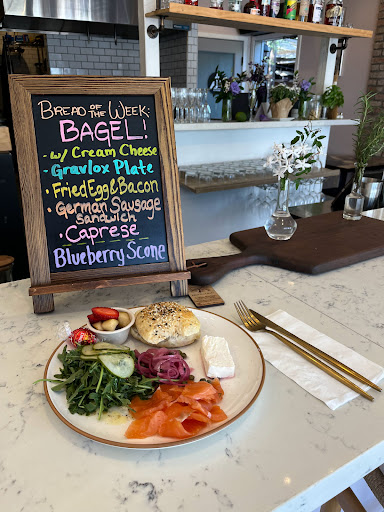 BREAD OF THE WEEK:
BAGEL!
• w/ CREAM CHEESE
• GRAVLOX PLATE
• FRIED EGG & BACON
• GERMAN SAUSAGE
SANDWICH
• CAPRESE
• BLUEBERRY SCONE